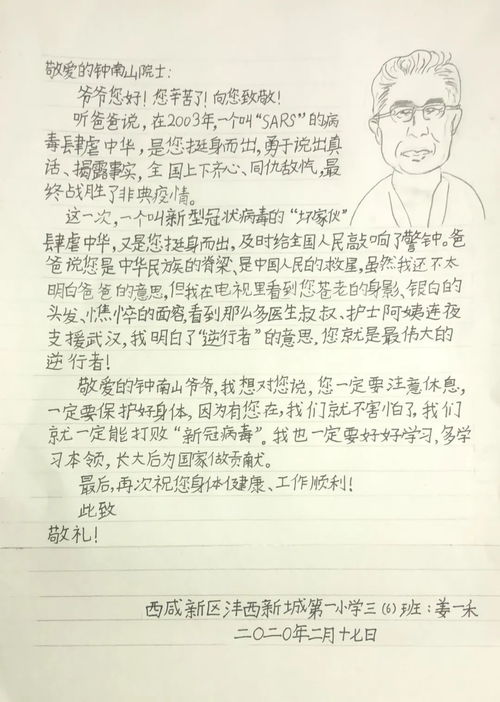 敬爱的钟南山院士:
爷爷您好!您辛苦了!向您致敬!
听爸爸说,在2003年,一个叫“SARS”的病
毒肆虐中华,是您挺身而出,勇于说出真
话、揭露事实,全国上下齐心、同仇敌忾,最
终战胜了非典疫情。
这一次,一个叫新型冠状病毒的“坏家伙”
肆虐中华,又是您挺身而出,及时给全国人民敲响了警钟。爸
爸说您是中华民族的脊梁、是中国人民的救星,虽然我还不太
明白爸爸的意思,但我在电视里看到您苍老的身影、银白的
头发、憔悴的面容,看到那么多医生叔叔、护士阿姨连夜
支援武汉,我明白了“逆行者”的意思,您就是最伟大的
逆行者!
敬爱的钟南山爷爷,我想对您说,您一定要注意休息,
一定要保护好身体,因为有您在,我们就不害怕了,我们
就一定能打败“新冠病毒”。我也一定要好好学习,多学
习本领,长大后为国家做贡献。
最后,再次祝您身体健康、工作顺利!
此致
敬礼!
西咸新区沣西新城第一小学三(6)班:姜一禾
二〇二〇年二月十七日